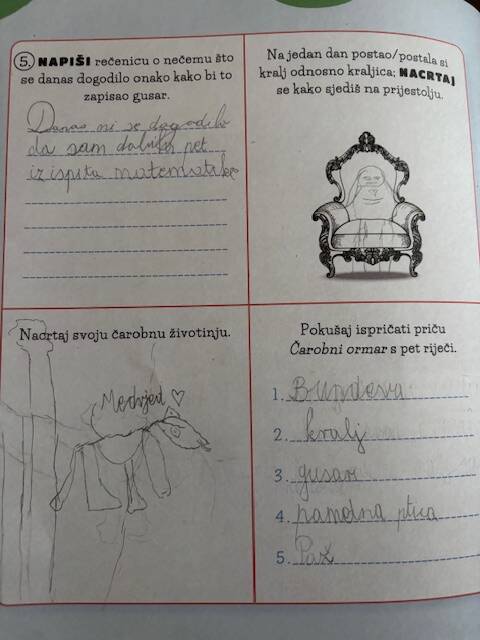 5. NAPIŠI rečenicu o nečemu što
se danas dogodilo onako kako bi to
zapisao gusar.
Danas mi se dogodilo
da sam dobila pet
iz ispita matematike
Na jedan dan postao/postala si
kralj odnosno kraljica; NACRTAJ
se kako sjediš na prijestolju.
Nacrtaj svoju čarobnu životinju.
Medvjed ♡
Pokušaj ispričati priču
Čarobni ormar s pet riječi.
1. Bundeva
2. kralj
3. gusar
4. pametna ptica
5. Paž